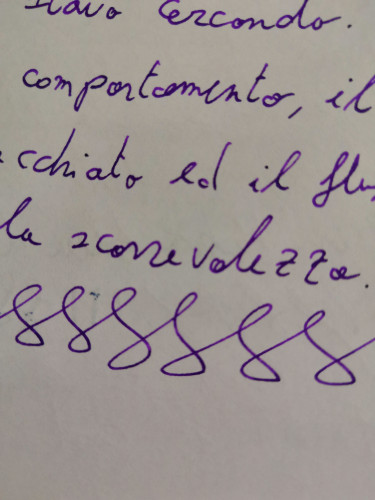 stavo cercando.
comportamento, il
cchiato ed il flu
la scorrevolezza.